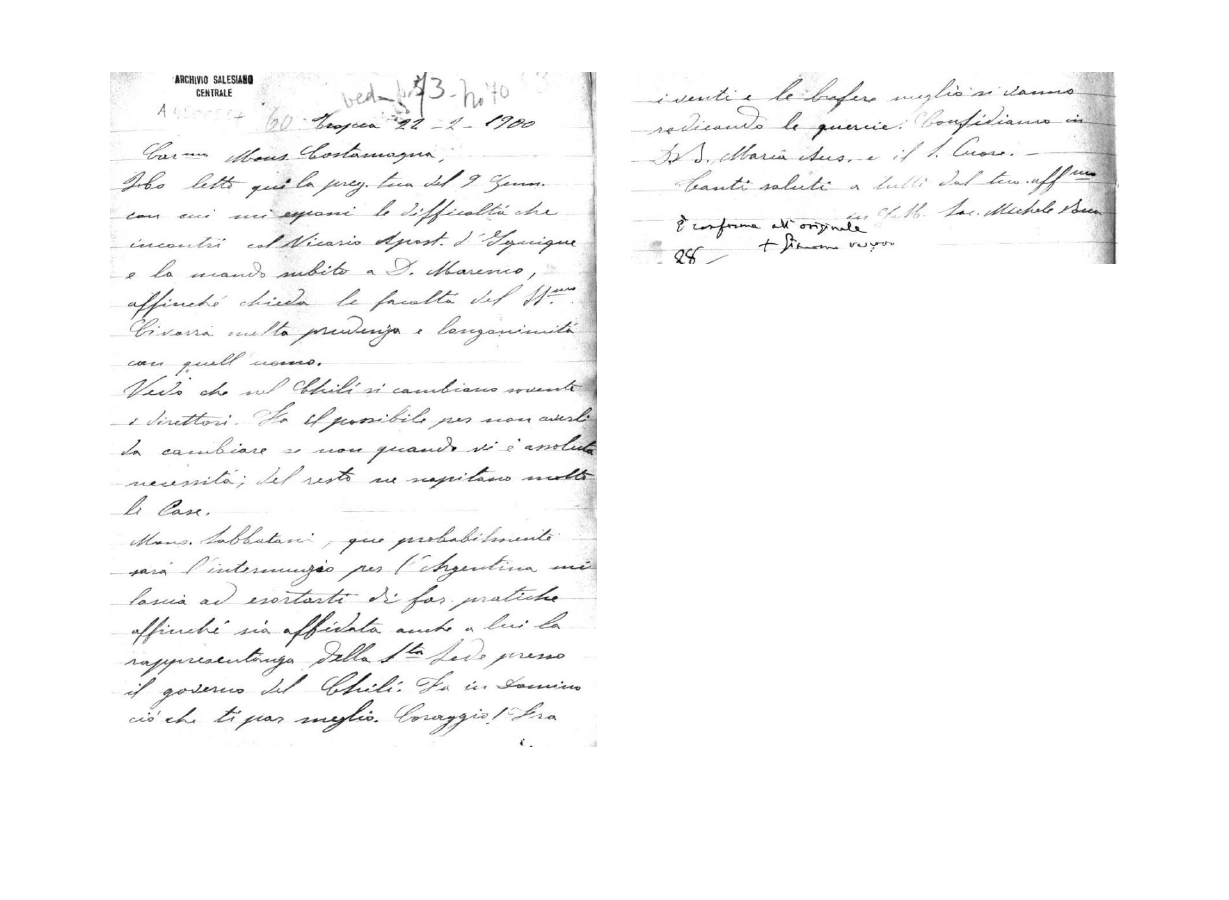 ARCHIVIO SALESIANO
CENTRALE
Tropea 22 - 2 - 1900
Car.mo Mons. Costamagna,
Ho letto qui la preg. tua del 9 Genn.
con cui mi esponi le difficoltà che
incontri col Vicario Apost. d'Iquique
e la mando subito a D. Marenco,
affinché chieda le facoltà del
Ci vorrà molta prudenza e longanimità
con quell'uomo.
Vedo che nel Chilì si cambiano sovente
i direttori. Fa il possibile per non averli
da cambiare se non quando vi è assoluta
necessità; del resto ne scapitano molto
le Case.
Mons. Sabbatani, que probabilmente
sarà l'internunzio per l'Argentina mi
lascia ad esortarti di far pratiche
affinché sia affidata anche a lui la
rappresentanza della S.ta Sede presso
il governo del Chilì. Fa in Domino
ciò che ti par meglio. Coraggio! Fra
i venti e le bufere meglio si vanno
radicando le quercie. Confidiamo in
D. B. Maria Aus. e il S. Cuore.
Tanti saluti a tutti dal tuo aff.mo
in Sac. Michele Rua
È conforme all'originale
+ Giacomo
28